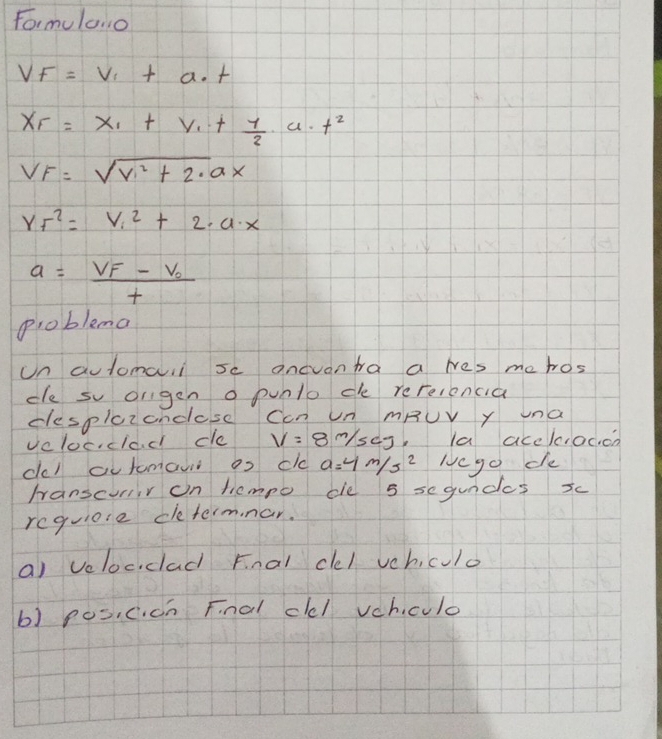 Formulario
VF = Vi + a.t
XF = Xi + Vi.t + 1/2 . a.t²
VF = √Vi² + 2.ax
VF² = Vi² + 2.a.x
a = VF - Vo / t
problema
un automovil se encuentra a tres metros
de su origen o punto de referencia
desplazandose con un MRUV y una
velocidad de V = 8 m/seg. la aceleración
del automovil es de a=4 m/s² luego de
transcurrir un tiempo de 5 segundos se
requiere determinar.
a) velocidad Final del vehiculo
b) posición Final del vehiculo